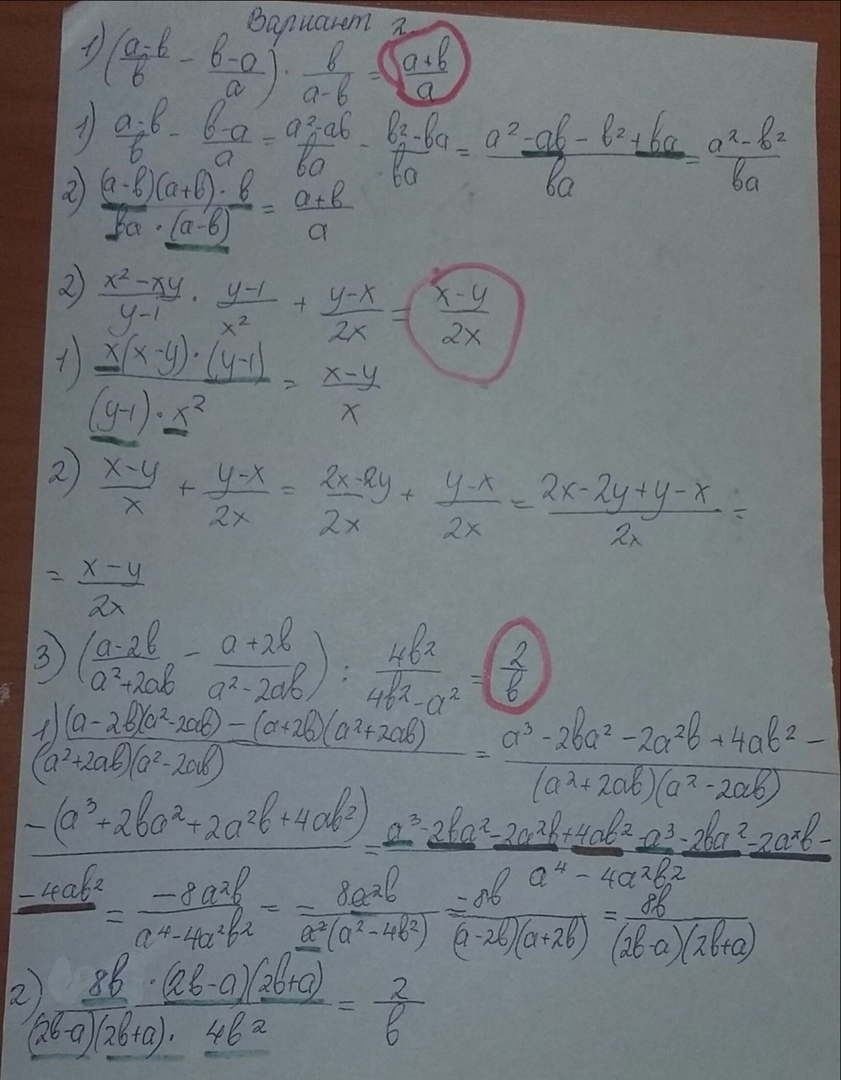 Вариант 2.
1) ((a-b)/b - (b-a)/a) · b/(a-b) = (a+b)/a
1) (a-b)/b - (b-a)/a = (a²-ab)/ba - (b²-ba)/ba = (a²-ab-b²+ba)/ba = (a²-b²)/ba
2) ((a-b)(a+b)·b)/(ba·(a-b)) = (a+b)/a
2) (x²-xy)/(y-1) · (y-1)/x² + (y-x)/2x = (x-y)/2x
1) (x(x-y)·(y-1))/((y-1)·x²) = (x-y)/x
2) (x-y)/x + (y-x)/2x = (2x-2y)/2x + (y-x)/2x = (2x-2y+y-x)/2x =
= (x-y)/2x
3) ((a-2b)/(a²+2ab) - (a+2b)/(a²-2ab)) : 4b²/(4b²-a²) = 2/b
1) ((a-2b)(a²-2ab)-(a+2b)(a²+2ab))/((a²+2ab)(a²-2ab)) = (a³-2ba²-2a²b+4ab²-)/((a²+2ab)(a²-2ab))
-(a³+2ba²+2a²b+4ab²) = (a³-2ba²-2a²b+4ab²-a³-2ba²-2a²b-)/(a⁴-4a²b²)
-4ab² = (-8a²b)/(a⁴-4a²b²) = = 8a²b/(a²(a²-4b²)) = -8b/((a-2b)(a+2b)) = 8b/((2b-a)(2b+a))
2) (8b·(2b-a)(2b+a))/((2b-a)(2b+a)·4b²) = 2/b